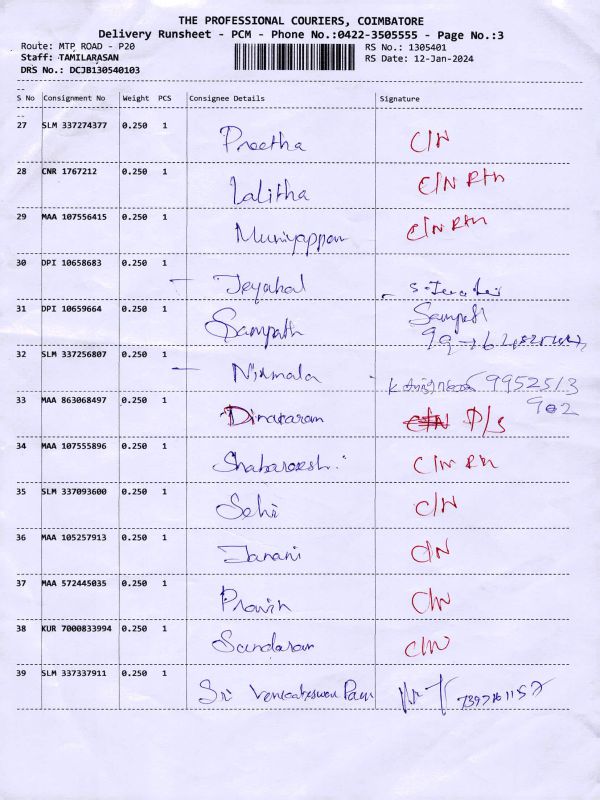 THE PROFESSIONAL COURIERS, COIMBATORE
Delivery Runsheet - PCM - Phone No.:0422-3505555 - Page No.:3
Route: MTP ROAD - P20 RS No.: 1305401
Staff: TAMILARASAN RS Date: 12-Jan-2024
DRS No.: DCJB130540103
S No Consignment No Weight PCS Consignee Details Signature
27 SLM 337274377 0.250 1 Preetha C/N
28 CNR 1767212 0.250 1 Lalitha C/N Rtn
29 MAA 107556415 0.250 1 Muniyappan C/N Rtn
30 DPI 10658683 0.250 1 Jeyabal
31 DPI 10659664 0.250 1 Sampath Sampath
32 SLM 337256807 0.250 1 Nirmala 9952513
902
33 MAA 863068497 0.250 1 Dinakaran D/S
34 MAA 107555896 0.250 1 C/N Rtn
35 SLM 337093600 0.250 1 C/N
36 MAA 105257913 0.250 1 Janani C/N
37 MAA 572445035 0.250 1 Pravin C/N
38 KUR 7000833994 0.250 1 Sundaram C/N
39 SLM 337337911 0.250 1 Sri